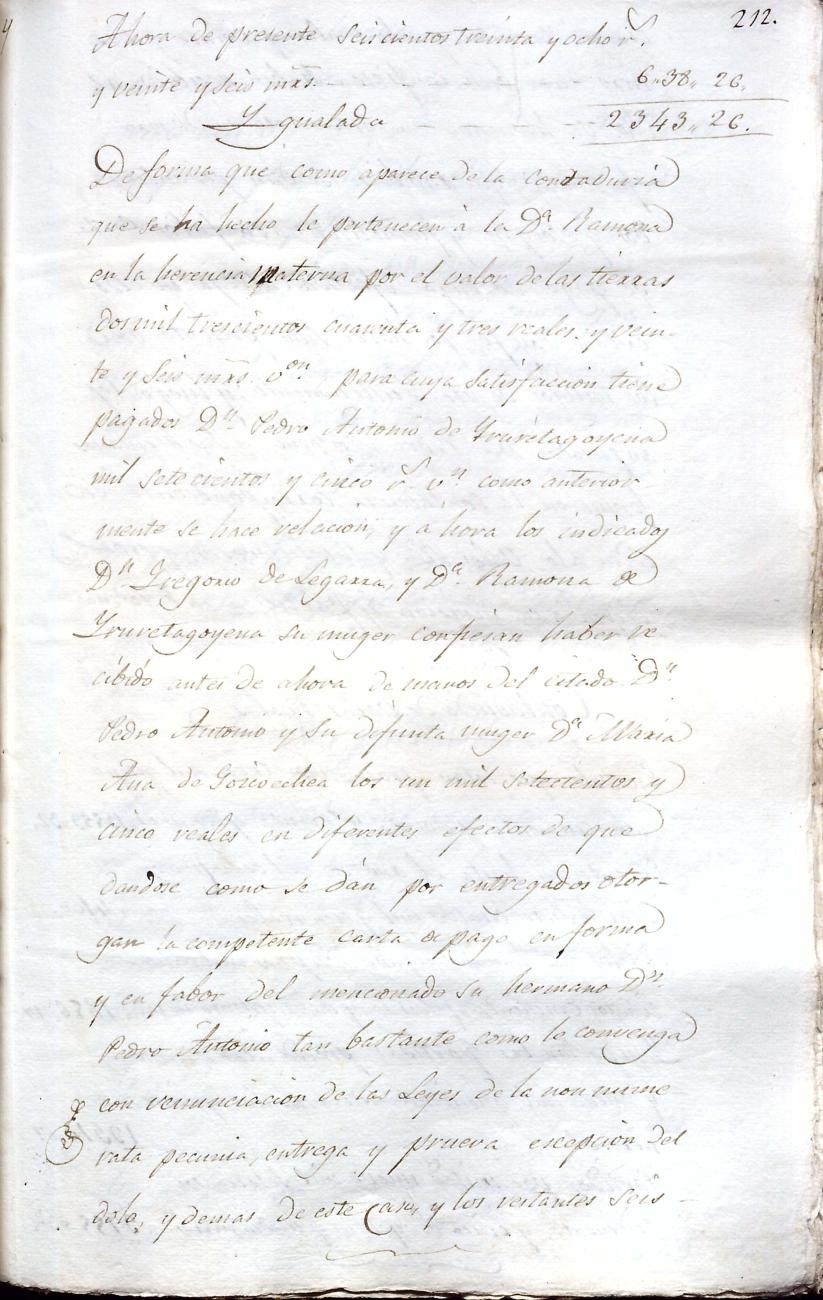 212.
Ahora de presente seiscientos treinta y ocho r.s
y veinte y seis mrs. 6,,38,, 26,
Ygualada 2343,, 26.
De forma que como aparece de la contaduria
que se ha hecho le pertenecen à la D.a Ramona
en la herencia Materna por el valor de las tierras
dos mil trescientos cuarenta y tres reales y vein-
te y seis mrs. von, para cuya satisfaccion tiene
pagados D.n Pedro Antonio de Yruretagoyena
mil setecientos y cinco r.s v.n como anterior-
mente se hace relacion, y ahora los indicados
D.n Gregorio de Legarra, y D.a Ramona de
Yruretagoyena su muger confiesan haber re-
cibido antes de ahora de manos del citado D.n
Pedro Antonio y su difunta muger D.a Maria
Ana de Goicoechea los un mil setecientos y
cinco reales en diferentes efectos de que
dandose como se dán por entregados otor-
gan la competente carta de pago en forma
y en fabor del mencionado su hermano D.n
Pedro Antonio tan bastante como le convenga
con renunciacion de las Leyes de la non nume
rata pecunia, entrega y prueva escepcion del
dolo, y demas de este caso, y los restantes seis-